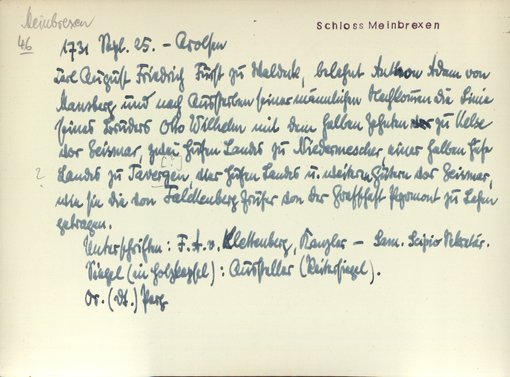 Meinbrexen
46
Schloss Meinbrexen
1731 Sept. 25. – Arolsen
Carl August Friedrich Fürst zu Waldeck, belehnt Anthon Adam von
Mansberg und nach Aussterben seiner männlichen Nachkommen die Linie
seines Bruders Otto Wilhelm mit dem halben Zehnten zu Kelse
vor Geismar, zwei Hufen Landes zu Niedermescher, einer halben Hufe
? Landes zu Tavergen, vier Hufen Landes u. weiteren Gütern vor Geismar,
wie sie die von Falckenberg früher von der Grafschaft Pyrmont zu Lehen
getragen.
Unterschriften: F. A. v. Klettenberg, Kanzler – Sam. Scipio Sekretär.
Siegel (in Holzkapsel): Aussteller (Reitersiegel).
Or. (Dt.) Perg